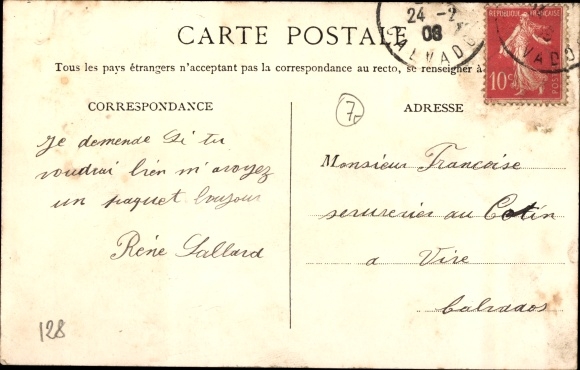 24 -2
08
CALVADOS
REPUBLIQUE FRANÇAISE
10c
POSTES
VADOS
CARTE POSTALE
Tous les pays étrangers n'acceptant pas la correspondance au recto, se renseigner à
7
CORRESPONDANCE
Je demende Si tu
voudrai bien m'avoyez
un paquet
René Lallard
ADRESSE
Monsieur Francoise
serurerier au Cotin
a Vire
Calvados
128